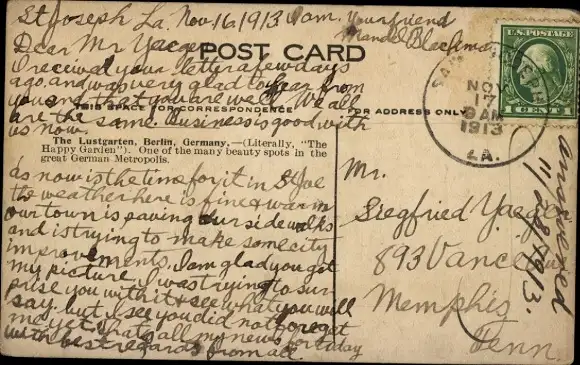 St Joseph La. Nov. 16, 1913 I am, Your friend
Mandel Blachman
Dear Mr Yaeger
POST CARD
I received your letter a few days
ago, and was very glad to hear from
you and that you are well. We all
THIS SPACE FOR CORRESPONDENCE
FOR ADDRESS ONLY
are the same. Business is good with
us now.
The Lustgarten, Berlin, Germany.—(Literally, "The
Happy Garden"). One of the many beauty spots in the
great German Metropolis.
as now is the time for it in St Joe
the weather here is fine & warm
our town is paving our sidewalks
and is trying to make some city
improvements. I am glad you got
my picture. I was trying to sur-
prise you with it & see what you will
say, but I see you did not forget
me yet. Thats all my news for today
with best regards from all.
U.S. POSTAGE
1 CENT 1
NOV
17
8 AM
1913
LA.
Mr.
Siegfried Yaeger
893 Vance
Memphis
Tenn.
answered
11/28/1913.